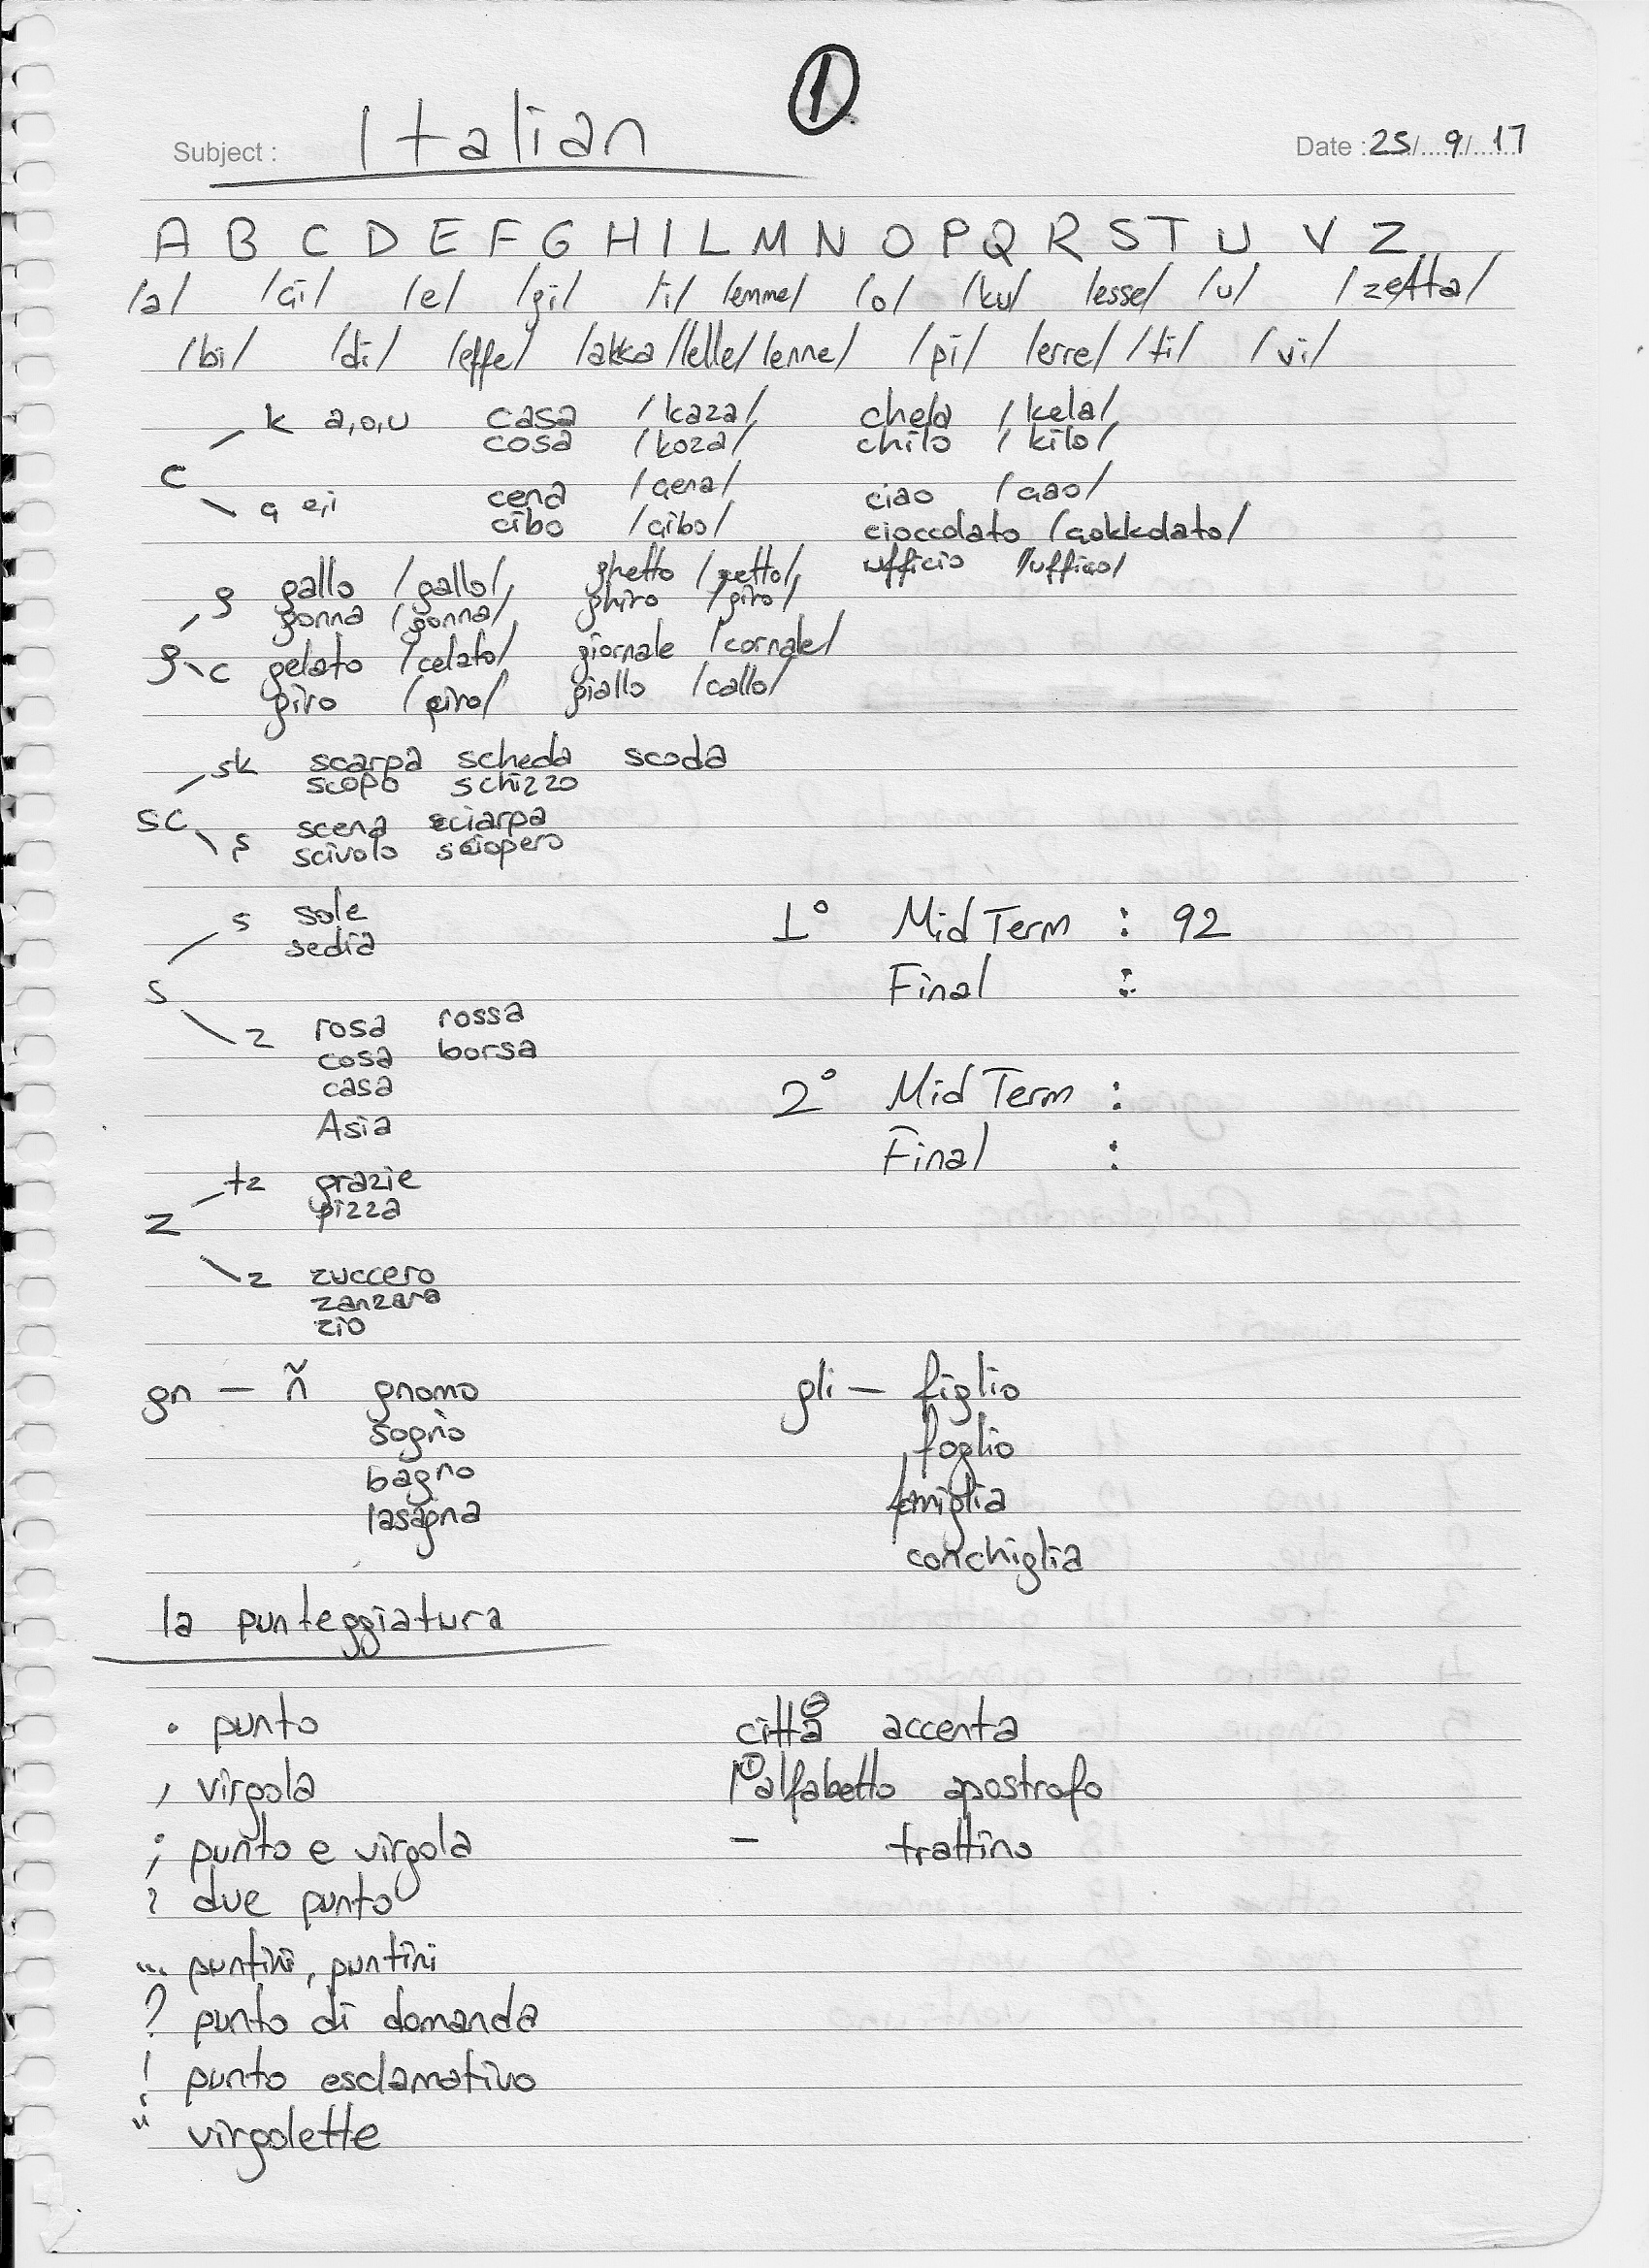 1
Subject : Italian
Date : 25/ 9/ 17
A B C D E F G H I L M N O P Q R S T U V Z
/a/ /çi/ /e/ /gi/ /i/ /emme/ /o/ /ku/ /esse/ /u/ /zetta/
/bi/ /di/ /effe/ /akka/ /elle/ /enne/ /pi/ /erre/ /ti/ /vi/
k a,o,u casa /kaza/ chela /kela/
cosa /koza/ chilo /kilo/
c
ç e,i cena /çena/ ciao /çao/
cibo /çibo/ cioccolato /çokkolato/
ufficio /uffiço/
g gallo /gallo/ ghetto /getto/
gonna /gonna/ ghiro /giro/
g
c gelato /celato/ giornale /cornale/
giro /ciro/ giallo /callo/
sk scarpa scheda scoda
scopo schizzo
sc
ş scena sciarpa
scivolo sciopero
s sole
sedia
s
z rosa rossa
cosa borsa
casa
Asia
1° Mid Term : 92
Final :
2° Mid Term :
Final :
tz grazie
pizza
z
z zuccero
zanzara
zio
gn — ñ gnomo
sogno
bagno
lasagna
gli — figlio
foglio
famiglia
conchiglia
la punteggiatura
. punto
, virgola
; punto e virgola
: due punto
... puntini, puntini
? punto di domanda
! punto esclamativo
" virgolette
città accenta
l'alfabetto apostrofo
- trattino